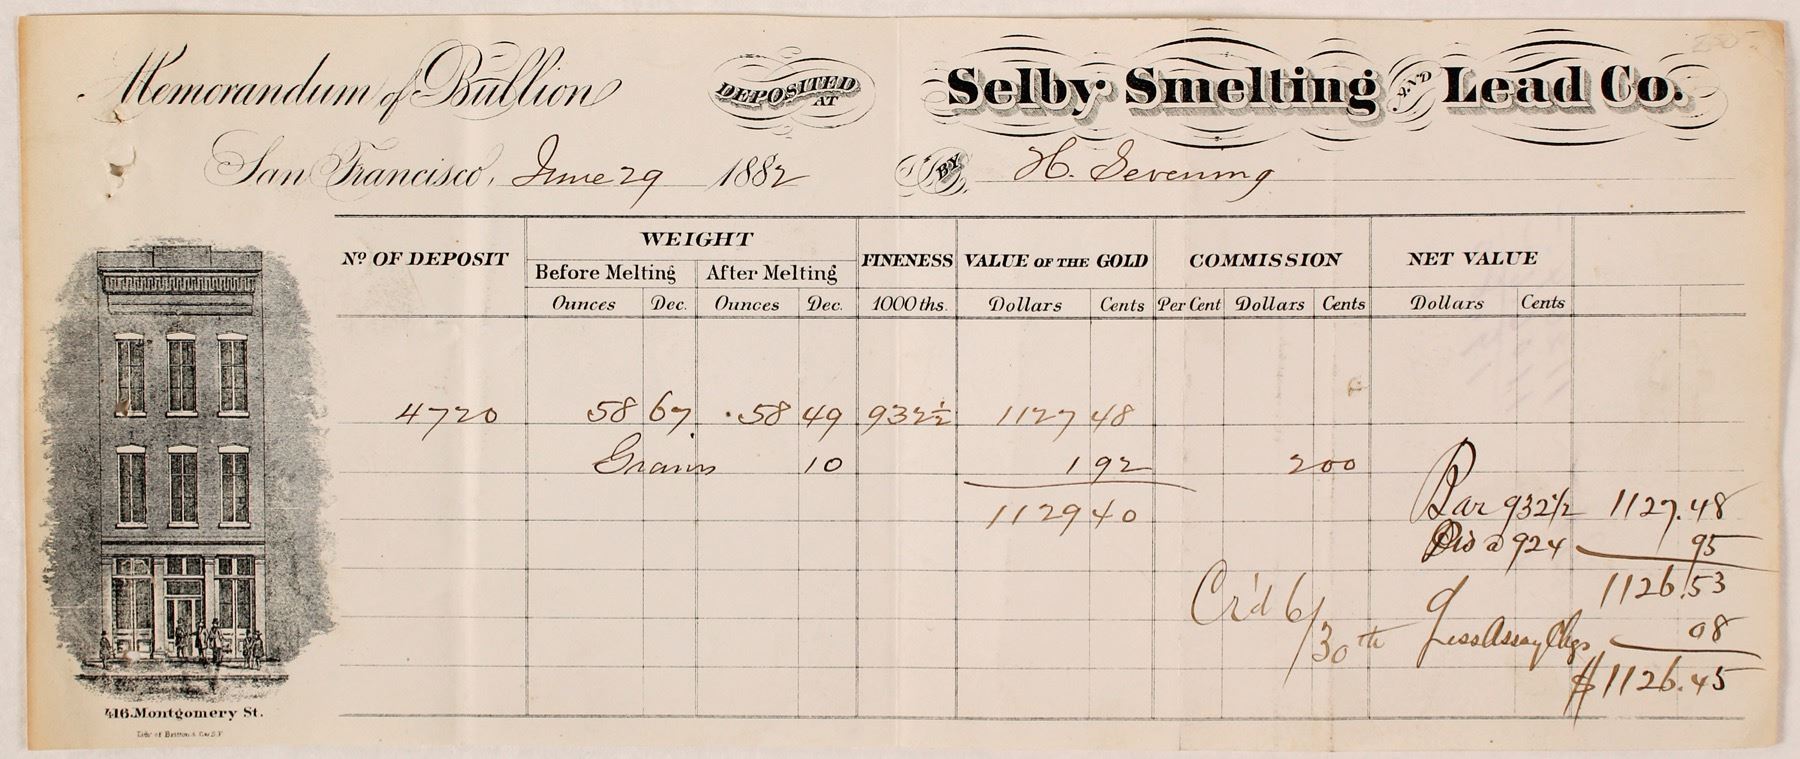 Memorandum of Bullion DEPOSITED AT Selby Smelting AND Lead Co.
San Francisco, June 29 1882 BY H. Sevening
No OF DEPOSIT WEIGHT FINENESS VALUE OF THE GOLD COMMISSION NET VALUE
Before Melting After Melting
Ounces Dec. Ounces Dec. 1000ths. Dollars Cents Per Cent Dollars Cents Dollars Cents
4720 58 67 58 49 932½ 1127 48
Grains 10 1 92 2 00
1129 40
Bar 932½ 1127.48
Dis @ 924 95
1126.53
Cr'd 6/30th
Less Assay Chgs 08
$1126.45
416 Montgomery St.
Lith. of Britton & Co. S.F.